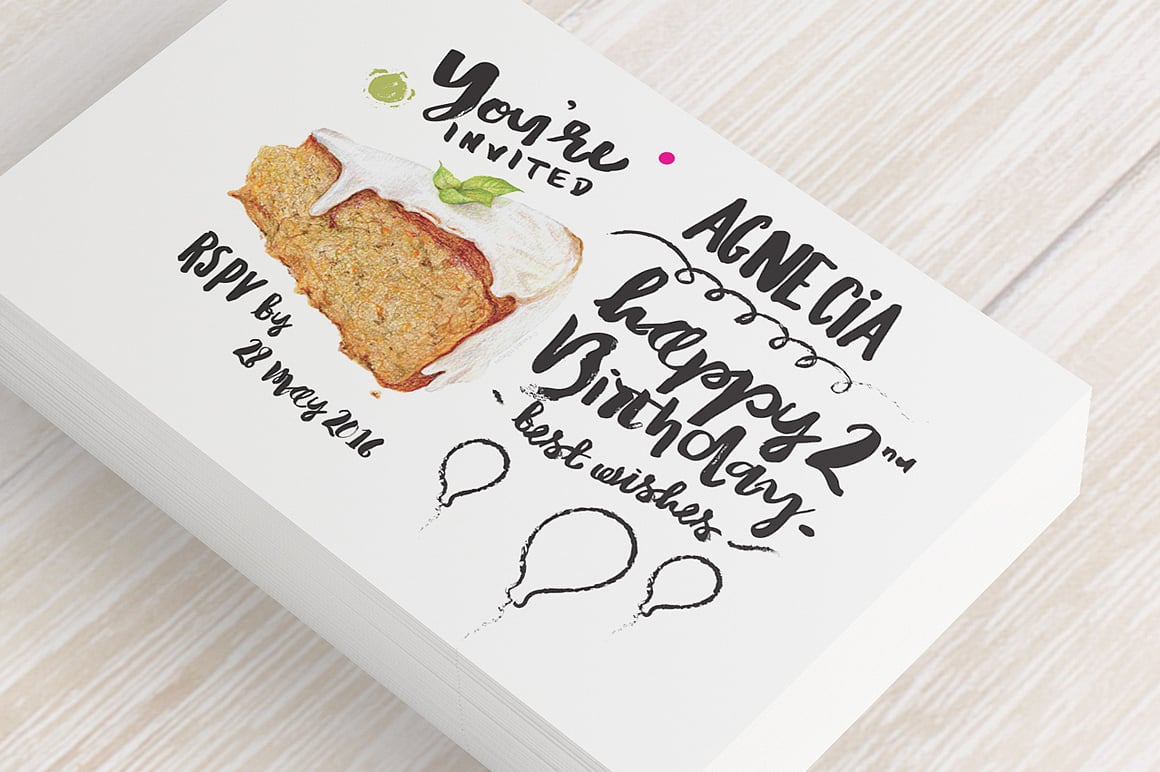 You're
INVITED
RSPV by
28 may 2016
AGNECiA
happy 2nd
Birthday.
best wishes